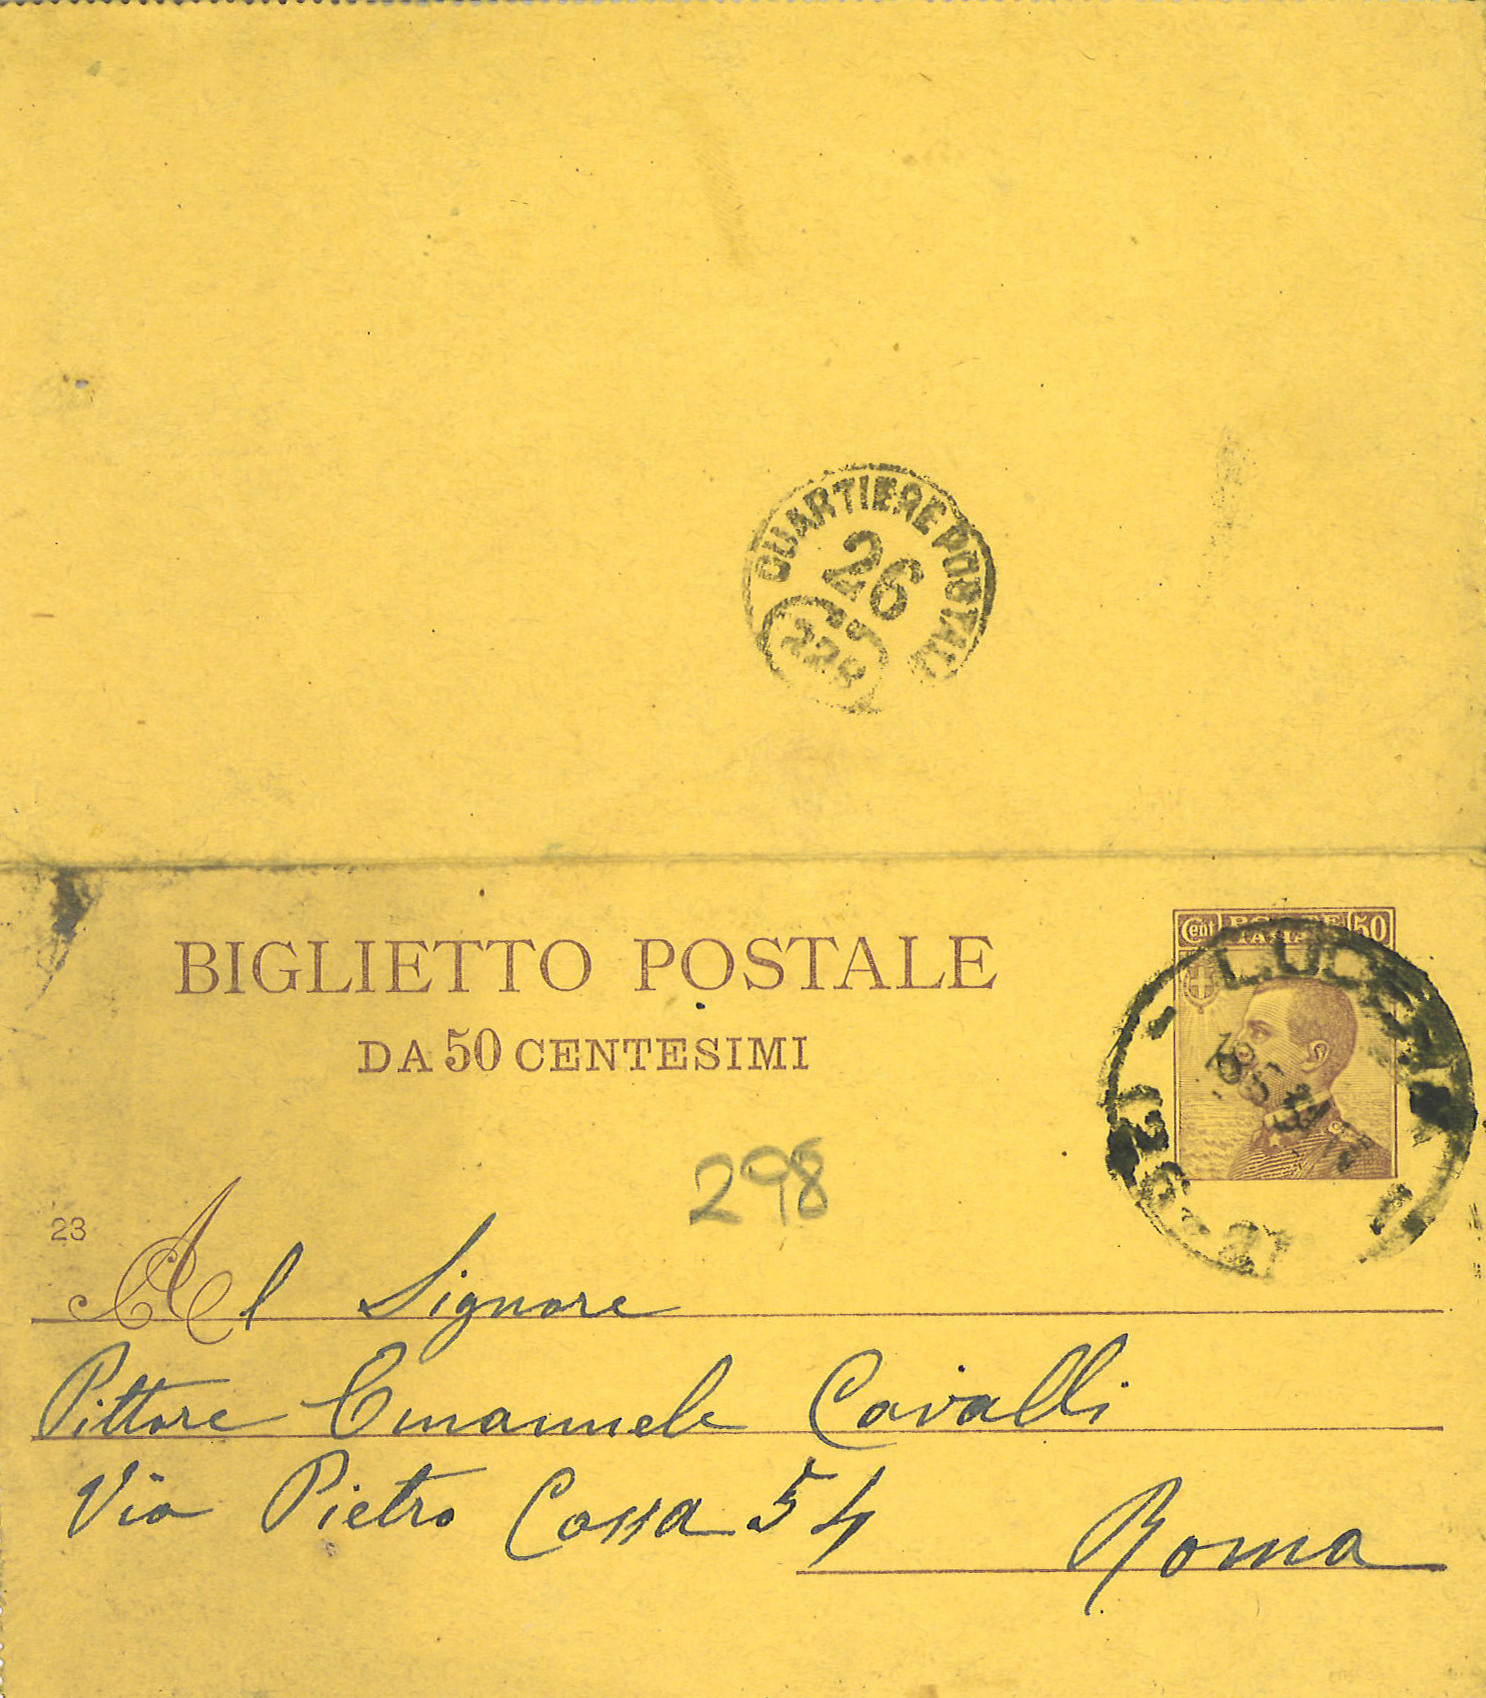 QUARTIERE POSTALE
26
BIGLIETTO POSTALE
DA 50 CENTESIMI
Cent POSTE 50
ITALIANE
LUCERA
298
23
Al Signore
Pittore Emanuele Cavalli
Via Pietro Cossa 54
Roma